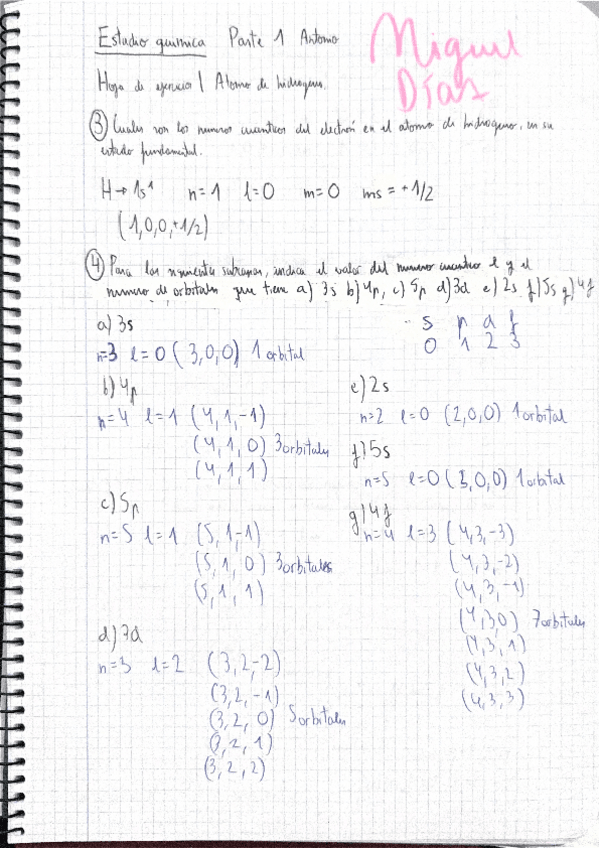 Estudio quimica Parte 1 Antonio
Miguel
Días
Hoja de ejercicio 1 Atomo de hidrogeno.
③ Cuales son los numeros cuanticos del electrón en el atomo de hidrogeno, en su
estado fundamental.
H → 1s¹ n=1 l=0 m=0 ms = +1/2
(1,0,0,+1/2)
④ Para las siguientes subcapas, indica el valor del numero cuantico l y el
numero de orbitales que tiene a) 3s b) 4p, c) 5p d) 3d e) 2s f) 5s g) 4f
s p d f
0 1 2 3
a) 3s
n=3 l=0 (3,0,0) 1 orbital
b) 4p
n=4 l=1 (4,1,-1)
(4,1,0) 3 orbitales
(4,1,1)
c) 5p
n=5 l=1 (5,1-1)
(5,1,0) 3 orbitales
(5,1,1)
d) 3d
n=3 l=2 (3,2-2)
(3,2,-1)
(3,2,0) 5 orbitales
(3,2,1)
(3,2,2)
e) 2s
n=2 l=0 (2,0,0) 1 orbital
f) 5s
n=5 l=0 (5,0,0) 1 orbital
g) 4f
n=4 l=3 (4,3,-3)
(4,3,-2)
(4,3,-1)
(4,3,0) 7 orbitales
(4,3,1)
(4,3,2)
(4,3,3)